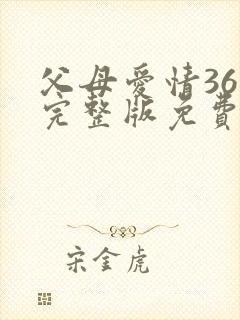 父母爱情36
完整版免费
宋金虎